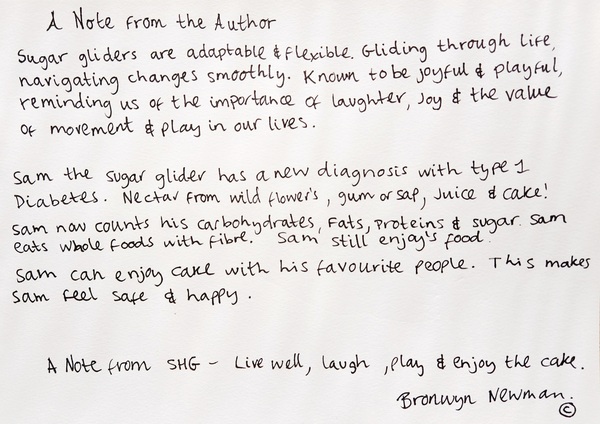 A Note from the Author
Sugar gliders are adaptable & flexible. Gliding through life,
navigating changes smoothly. Known to be joyful & playful,
reminding us of the importance of laughter, joy & the value
of movement & play in our lives.
Sam the sugar glider has a new diagnosis with type 1
Diabetes. Nectar from wild flower's, gum or sap, Juice & cake!
Sam now counts his carbohydrates, Fats, Proteins & sugar. Sam
eats whole foods with fibre. Sam still enjoy's food.
Sam can enjoy cake with his favourite people. This makes
Sam feel safe & happy.
A Note from SHG - Live well, laugh, play & enjoy the cake.
Bronwyn Newman.
©